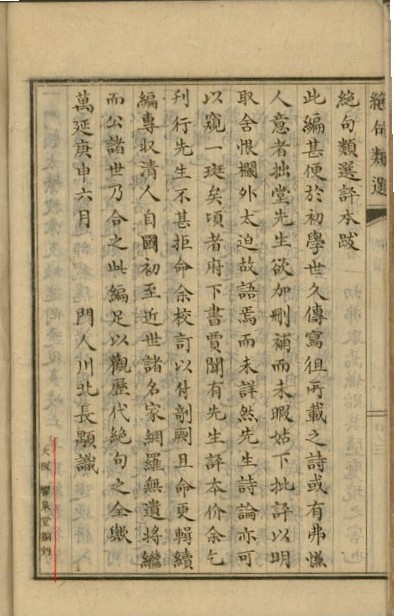 絶句類選
絶句類選評本跋
此編甚便於初學世久傳寫徂所載之詩或有弗愜
人意者拙堂先生欲加刪補而未暇姑下批評以明
取舍恨欄外太迫故語焉而未詳然先生詩論亦可
以窺一斑矣頃者府下書賈聞有先生評本价余乞
刊行先生不甚拒命余校訂以付剞劂且命更輯續
編專取清人自國初至近世諸名家網羅無遺將繼
而公諸世乃合之此編足以觀歷代絶句之全㦲
萬延庚申六月 門人川北長顒識
大阪